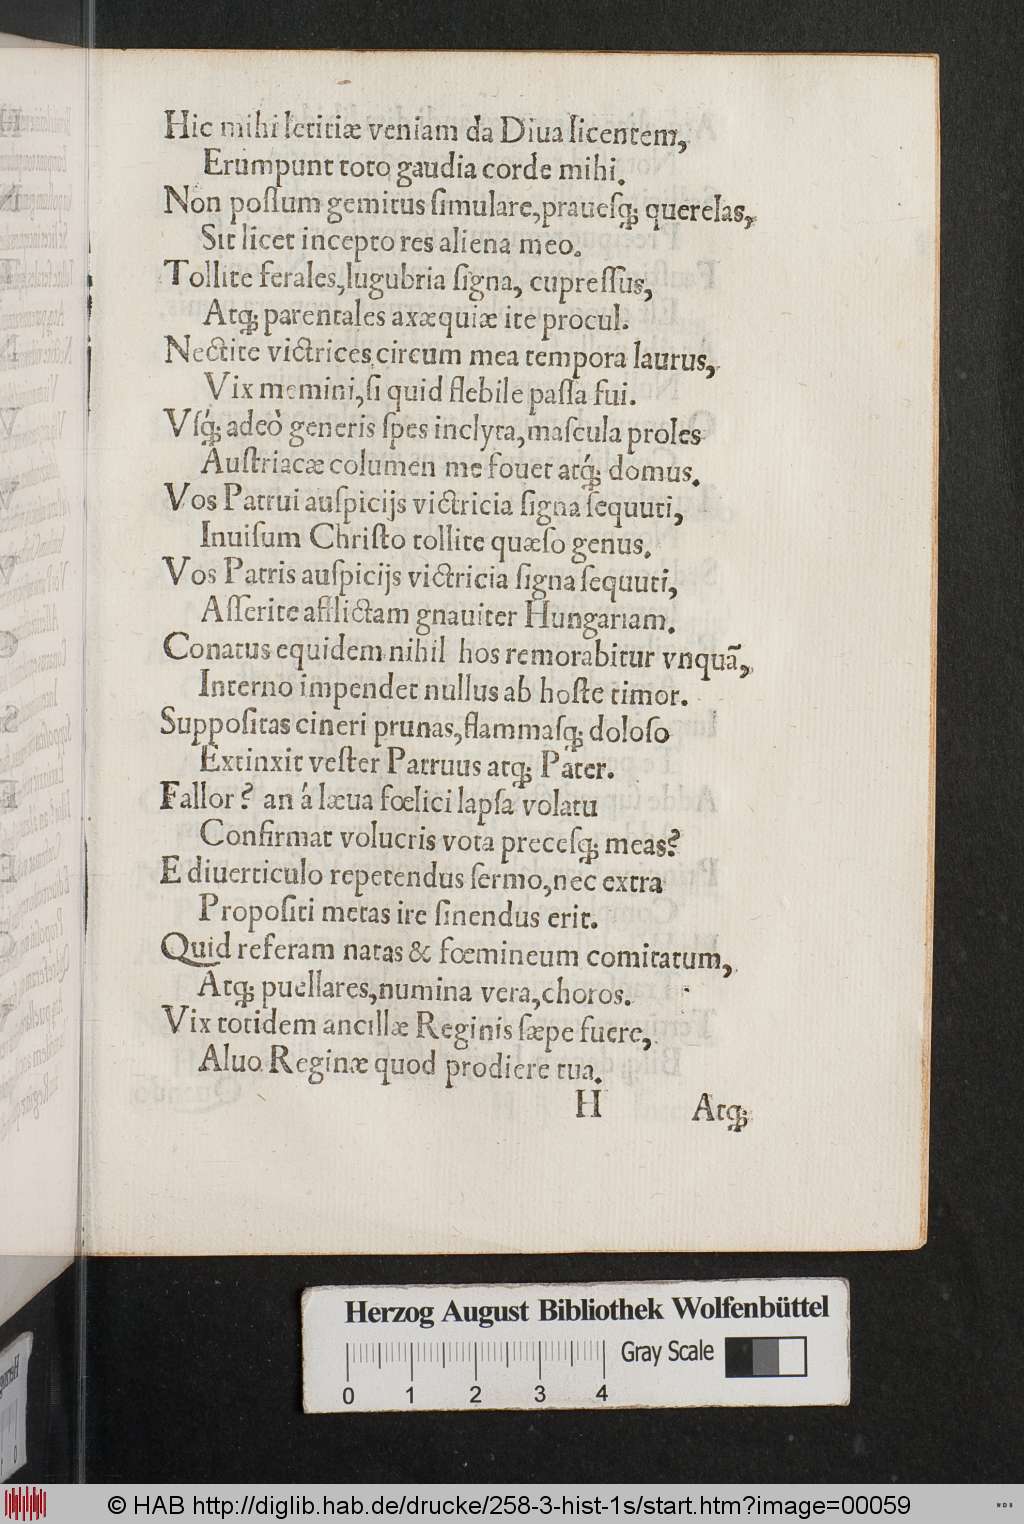 Hic mihi letitiæ veniam da Diua licentem,
Erumpunt toto gaudia corde mihi.
Non poſſum gemitus ſimulare, praueſq; querelas,
Sit licet incepto res aliena meo.
Tollite ferales, lugubria ſigna, cupreſſus,
Atq; parentales axæquiæ ite procul.
Nectite victrices circum mea tempora laurus,
Vix memini, ſi quid flebile paſſa fui.
Vſq́; adeò generis ſpes inclyta, maſcula proles
Auſtriacæ columen me fouet atq́; domus.
Vos Patrui auſpicijs victricia ſigna ſequuti,
Inuiſum Chriſto tollite quæſo genus.
Vos Patris auſpicijs victricia ſigna ſequuti,
Aſſerite afflictam gnauiter Hungariam.
Conatus equidem nihil hos remorabitur vnquã,
Interno impendet nullus ab hoſte timor.
Suppoſitas cineri prunas, flammaſq; doloſo
Extinxit veſter Patruus atq; Pater.
Fallor? an á læua fœlici lapſa volatu
Confirmat volucris vota preceſq; meas?
E diuerticulo repetendus ſermo, nec extra
Propoſiti metas ire ſinendus erit.
Quid referam natas & fœmineum comitatum,
Atq; puellares, numina vera, choros.
Vix totidem ancillæ Reginis ſæpe fuere,
Aluo Reginæ quod prodiere tua.
H Atq;
Herzog August Bibliothek Wolfenbüttel
Gray Scale
0 1 2 3 4
© HAB http://diglib.hab.de/drucke/258-3-hist-1s/start.htm?image=00059